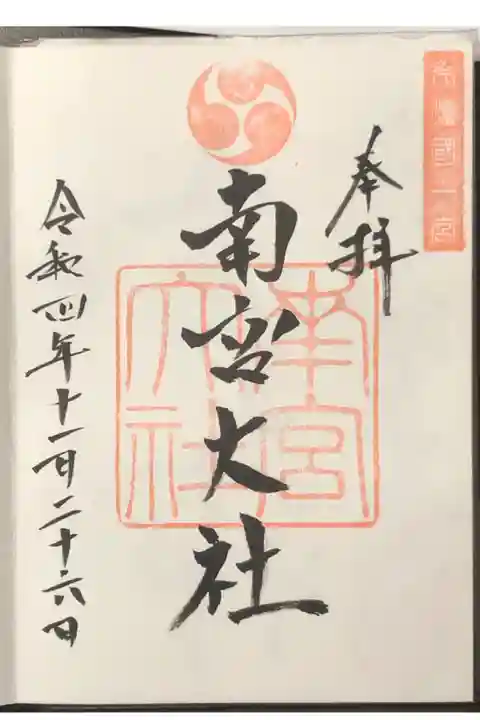 美濃國一宮
奉拝
南宮大社
南宮
大社
令和四年十一月二十六日